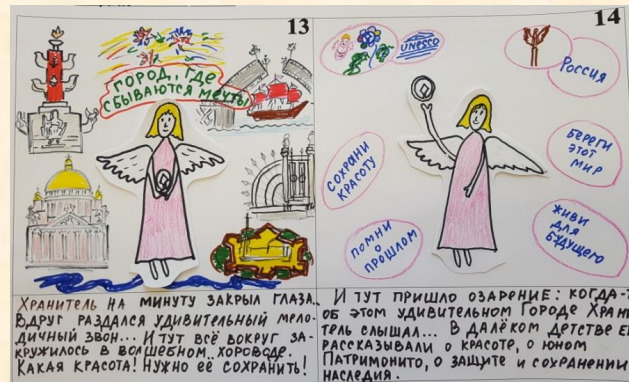 13
ГОРОД, ГДЕ
СБЫВАЮТСЯ МЕЧТЫ
ХРАНИТЕЛЬ НА МИНУТУ ЗАКРЫЛ ГЛАЗА..
ВДРУГ РАЗДАЛСЯ УДИВИТЕЛЬНЫЙ МЕЛО-
ДИЧНЫЙ ЗВОН... И ТУТ ВСЁ ВОКРУГ ЗА-
КРУЖИЛОСЬ В ВОЛШЕБНОМ ХОРОВОДЕ.
КАКАЯ КРАСОТА! НУЖНО ЕЁ СОХРАНИТЬ!
14
UNESCO
РОССИЯ
СОХРАНИ
КРАСОТУ
БЕРЕГИ
ЭТОТ
МИР
ПОМНИ
О
ПРОШЛОМ
ЖИВИ
ДЛЯ
БУДУЩЕГО
И ТУТ ПРИШЛО ОЗАРЕНИЕ: КОГДА-Т
ОБ ЭТОМ УДИВИТЕЛЬНОМ ГОРОДЕ ХРАНИ
ТЕЛЬ СЛЫШАЛ... В ДАЛЁКОМ ДЕТСТВЕ Е
РАССКАЗЫВАЛИ О КРАСОТЕ, О ЮНОМ
ПАТРИМОНИТО, О ЗАЩИТЕ И СОХРАНЕНИИ
НАСЛЕДИЯ.